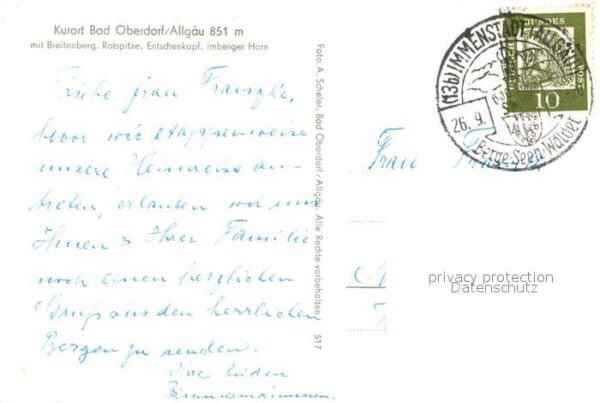 Kurort Bad Oberdorf/Allgäu 851 m
mit Breitenberg, Rotspitze, Entschenkopf, imberger Horn
bevor wir etappenweise
unsere Heimreise an-
treten, erlauben wir uns
Ihnen & Ihrer Familie
noch einen herzlichen
Gruß aus den herrlichen
Bergen zu senden.
Ihre beiden
Foto A. Scheler, Bad Oberdorf/Allgäu. Alle Rechte vorbehalten. 517
(13b) IMMENSTADT (ALLGÄU)
26.9.
Berge Seen Wälder
DEUTSCHE BUNDESPOST
10
Frau
privacy protection
Datenschutz